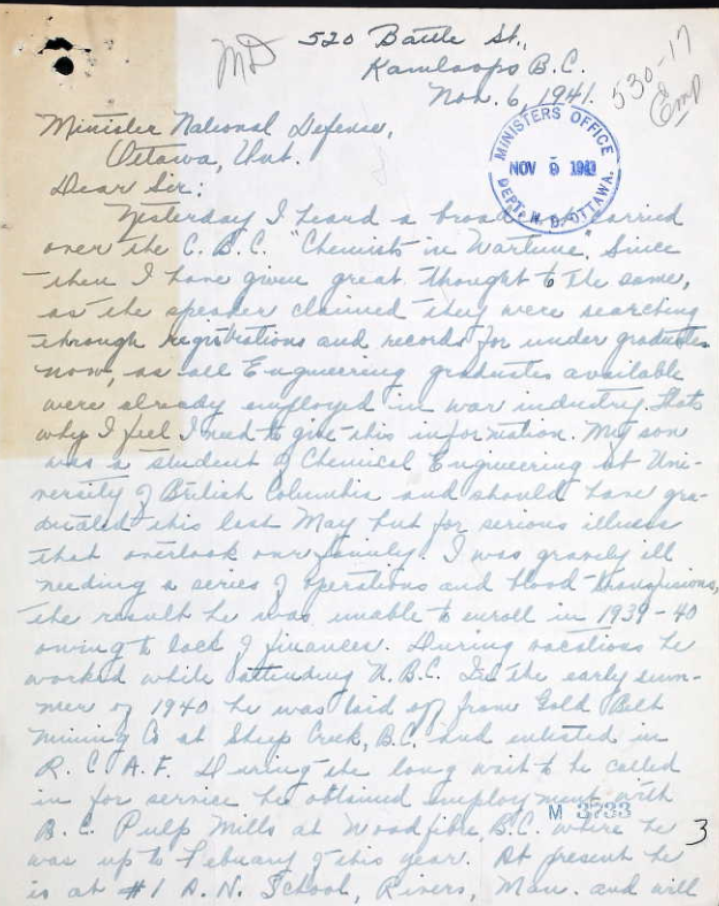 MD
520 Battle St.,
Kamloops B.C.
Nov. 6, 1941.
530-17
Emp
Minister National Defense,
Ottawa, Ont.
MINISTERS OFFICE
NOV 9
DEPT. N. D. OTTAWA.
Dear Sir:
Yesterday I heard a broadcast carried
over the C.B.C. "Chemists in Wartime". Since
then I have given great thought to the same,
as the speaker claimed they were searching
through registrations and records for under graduates
now, as all Engineering graduates available
were already employed in war industry. Thats
why I feel I need to give this information. My son
was a student of Chemical Engineering at Uni-
versity of British Columbia and should have gra-
duated this last May but for serious illness
that overtook our family. I was gravely ill
needing a series of operations and blood-transfusions,
the result he was unable to enroll in 1939-40
owing to lack of finances. During vacations he
worked while attending U.B.C. In the early sum-
mer of 1940 he was laid off from Gold Belt
Mining Co at Sheep Creek, B.C. and enlisted in
R.C.A.F. During the long wait to be called
in for service he obtained employment with
M 3733
B.C. Pulp Mills at Woodfibre, B.C. where he
3
was up to Febuary of this year. At present he
is at #1 A.N. School, Rivers, Man. and will